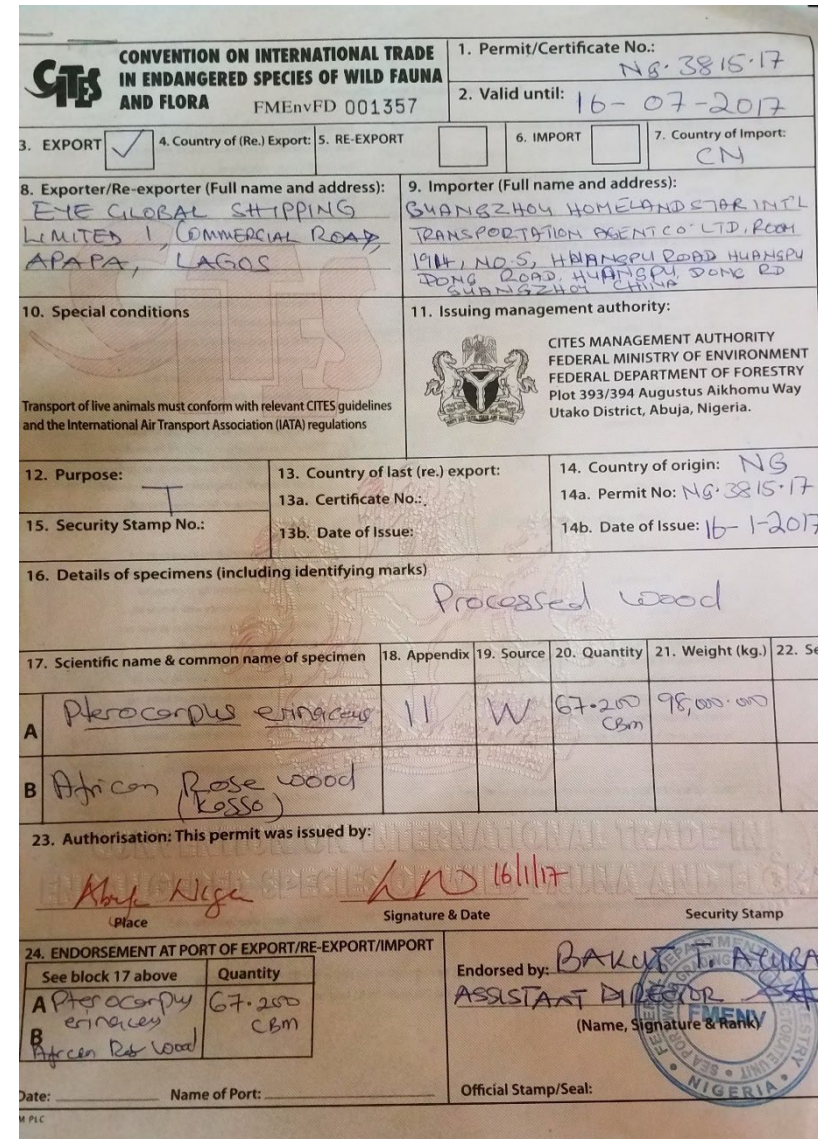 CITES
CONVENTION ON INTERNATIONAL TRADE
IN ENDANGERED SPECIES OF WILD FAUNA
AND FLORA FMEnvFD 001357
1. Permit/Certificate No.:
NG.3815.17
2. Valid until: 16-07-2017
3. EXPORT ✓
4. Country of (Re.) Export:
5. RE-EXPORT
6. IMPORT
7. Country of Import:
CN
8. Exporter/Re-exporter (Full name and address):
EYE GLOBAL SHIPPING
LIMITED 1, COMMERCIAL ROAD,
APAPA, LAGOS
9. Importer (Full name and address):
GUANGZHOU HOMELAND STAR INT'L
TRANSPORTATION AGENT CO. LTD, ROOM
1914, NO.5, HUANGPU ROAD HUANGPU
DONG ROAD, HUANGPU, DONG RD
GUANGZHOU CHINA
10. Special conditions
CITES
Transport of live animals must conform with relevant CITES guidelines
and the International Air Transport Association (IATA) regulations
11. Issuing management authority:
CITES MANAGEMENT AUTHORITY
FEDERAL MINISTRY OF ENVIRONMENT
FEDERAL DEPARTMENT OF FORESTRY
Plot 393/394 Augustus Aikhomu Way
Utako District, Abuja, Nigeria.
12. Purpose: T
13. Country of last (re.) export:
13a. Certificate No.:
13b. Date of Issue:
14. Country of origin: NG
14a. Permit No: NG.3815.17
14b. Date of Issue: 16-1-2017
15. Security Stamp No.:
16. Details of specimens (including identifying marks)
Processed wood
17. Scientific name & common name of specimen
18. Appendix
19. Source
20. Quantity
21. Weight (kg.)
22. Se
A Pterocarpus erinaceus 11 W 67.200 98,000.000
CBM
B African Rose wood
(Kosso)
23. Authorisation: This permit was issued by:
CONVENTION ON INTERNATIONAL TRADE IN
ENDANGERED SPECIES OF WILD FAUNA AND FLORA
16/1/17
Place
Signature & Date
Security Stamp
24. ENDORSEMENT AT PORT OF EXPORT/RE-EXPORT/IMPORT
See block 17 above
Quantity
A Pterocarpus 67.200
erinaceus CBM
B
African Rose Wood
Endorsed by: BAKUT T. AYUBA
ASSISTANT DIRECTOR
(Name, Signature & Rank)
FMENV
NIGERIA
Date:
Name of Port:
Official Stamp/Seal:
M PLC